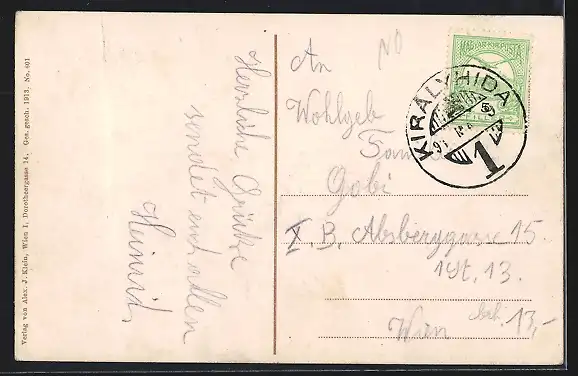 Verlag von Alex. J. Klein, Wien I, Dorotheergasse 14. Ges. gesch. 1913. No. 401
Herzliche Grüsse
sendet euch allen
Heinrich
NÖ
An
Wohlgeb
Gobi
X. B. Absberggasse 15.
1 St. 13.
Wien
13,-
MAGYAR KIR. POSTA
KIRÁLYHIDA